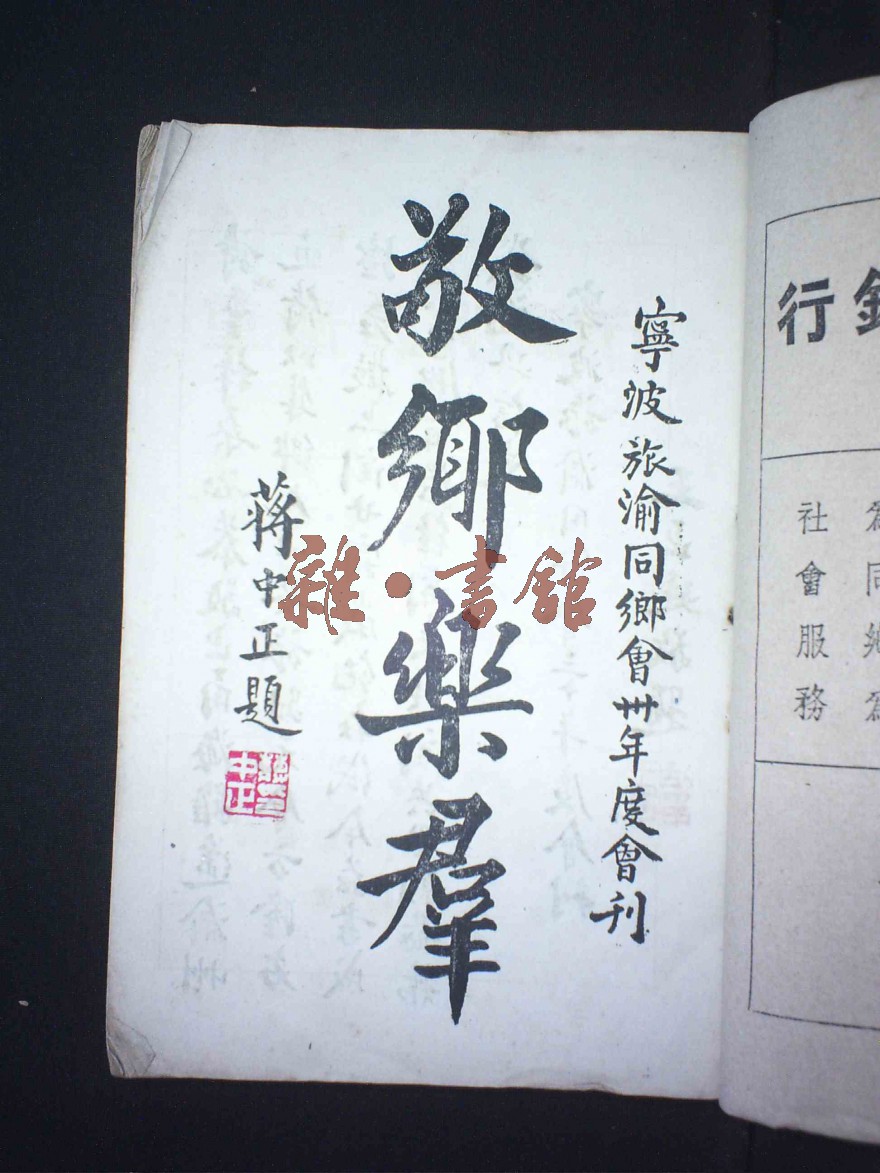 行
社會服務
寧波旅渝同鄉會卅年度會刊
敬鄉樂羣
蔣中正題
中正
雜·書館